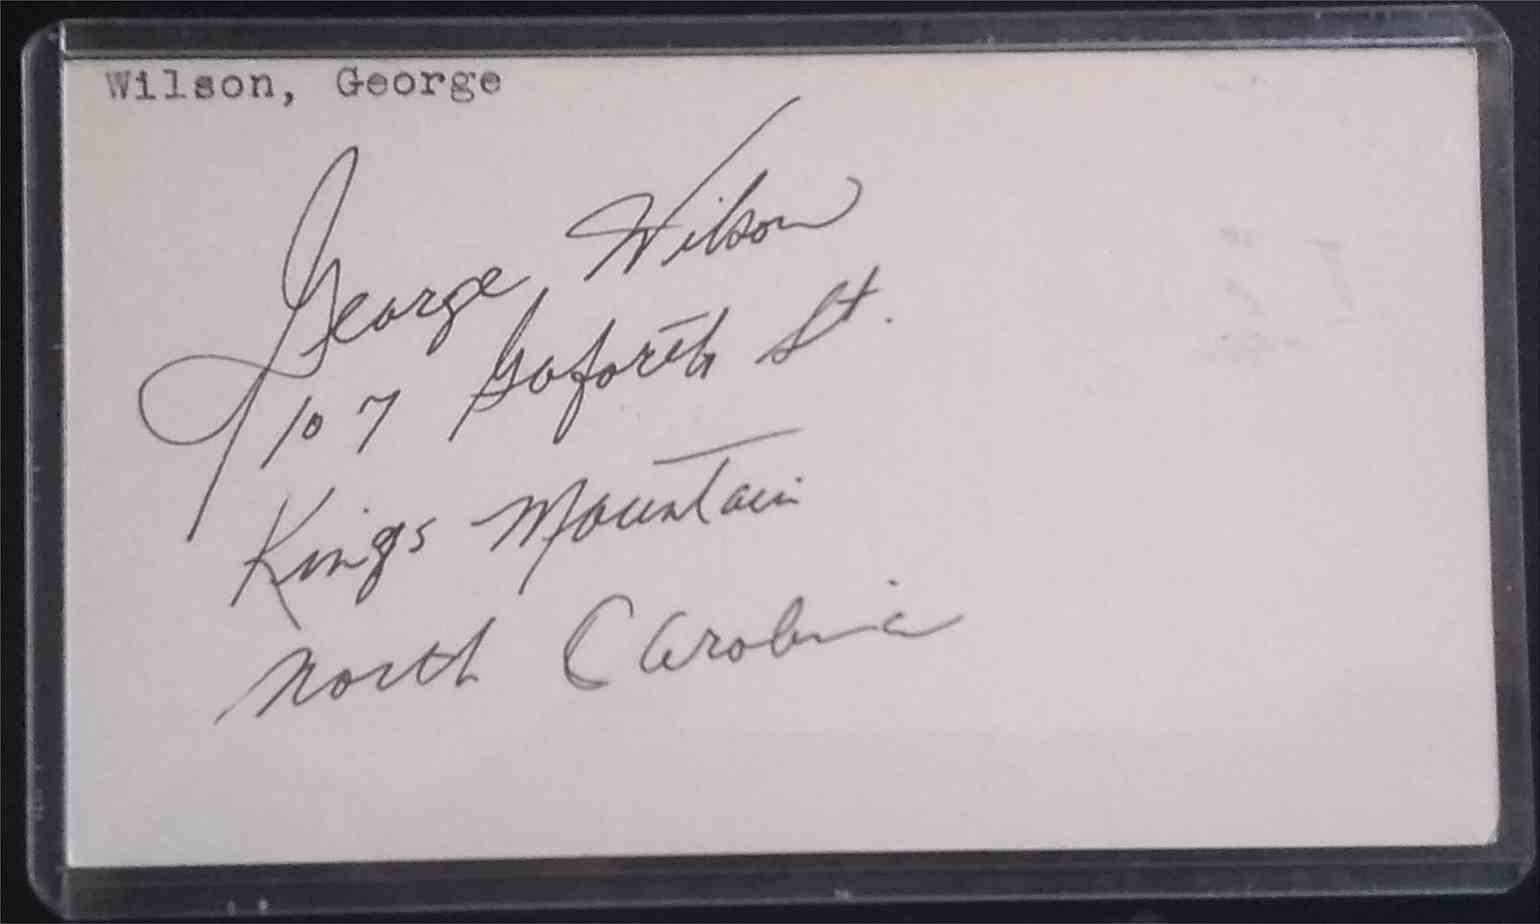 Wilson, George
George Wilson
107 Goforth St.
Kings Mountain
North Carolina